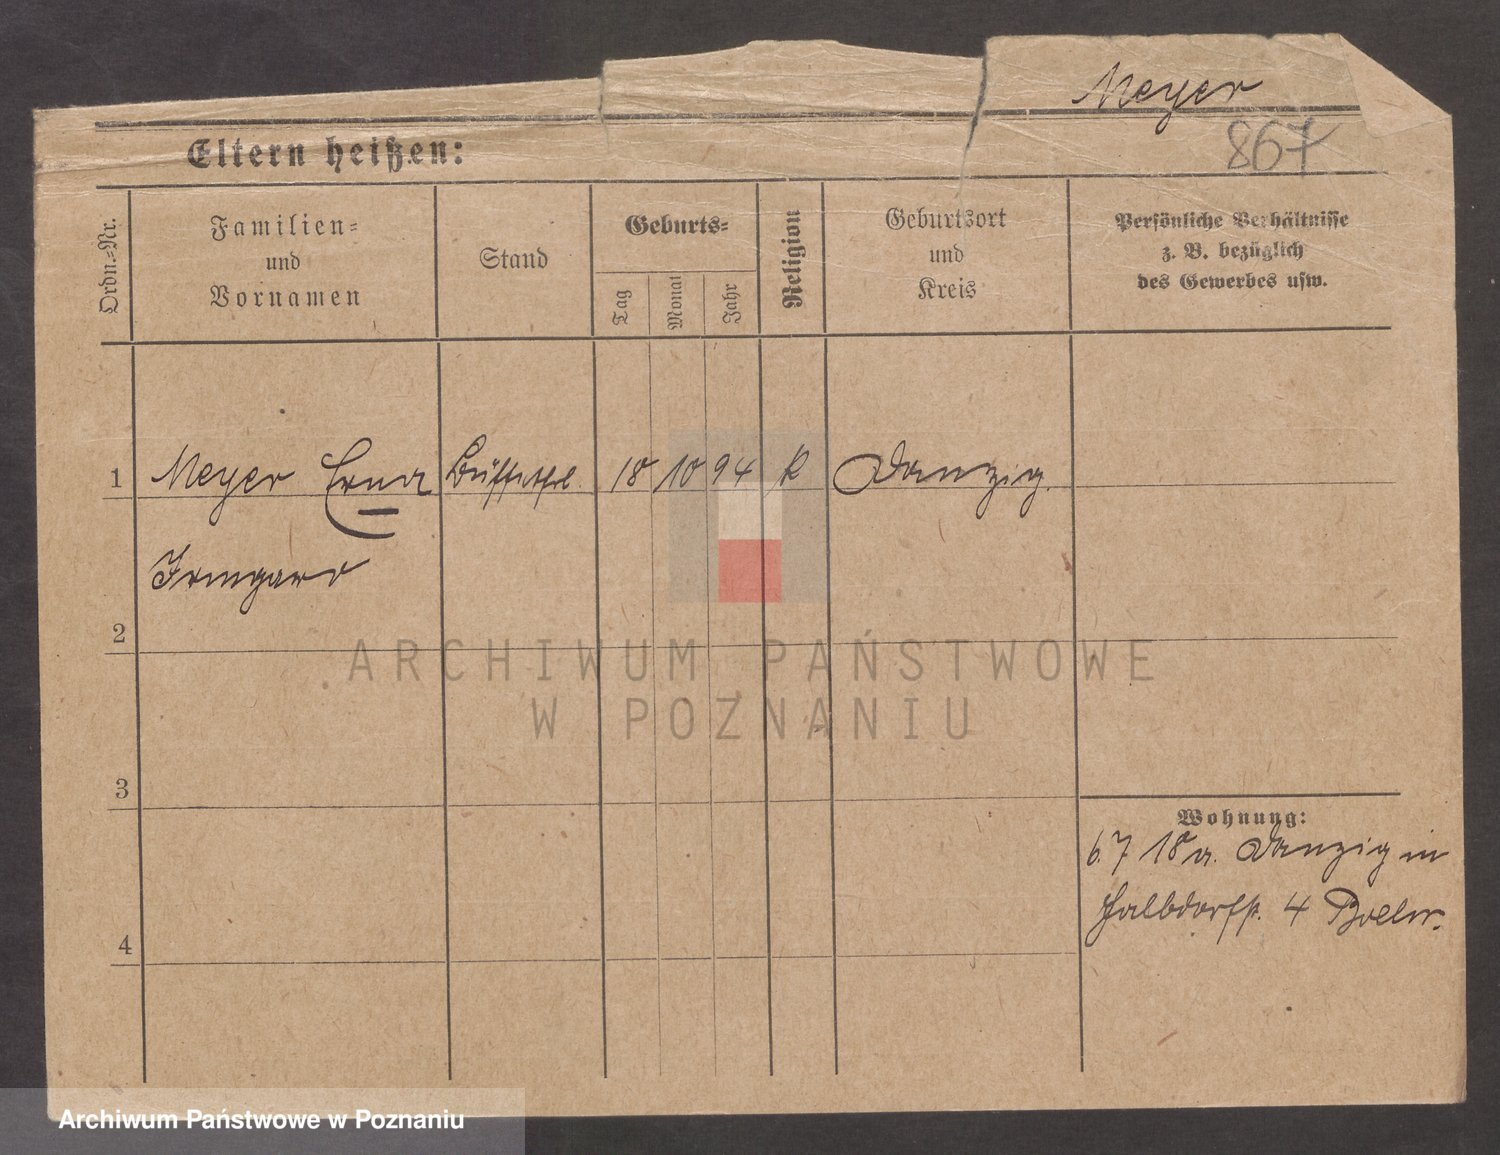 Meyer
867
Eltern heißen:
Ordn.-Nr.
Familien-
und
Vornamen
Stand
Geburts-
Tag
Monat
Jahr
Religion
Geburtsort
und
Kreis
Persönliche Verhältnisse
z. B. bezüglich
des Gewerbes usw.
1 Meyer Erna Büffetfrl. 18 10 94 k Danzig.
Irmgard
2
3
4
Wohnung:
6. 7 18 a. Danzig in
Halbdorfstr. 4
ARCHIWUM PAŃSTWOWE
W POZNANIU
Archiwum Państwowe w Poznaniu